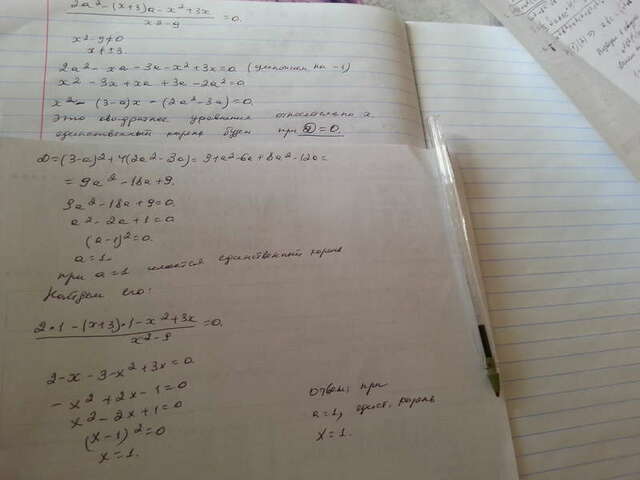 2a² - (x+3)a - x² + 3x = 0.
x² - 9
x² - 9 ≠ 0
x ≠ ± 3
2a² - xa - 3a - x² + 3x = 0 (умножим на -1)
x² - 3x + xa + 3a - 2a² = 0
x² - (3-a)x - (2a² - 3a) = 0.
Это квадратное уравнение относительно x
единственный корень будет при D = 0.
D = (3-a)² + 4(2a² - 3a) = 9 + a² - 6a + 8a² - 12a =
= 9a² - 18a + 9.
9a² - 18a + 9 = 0.
a² - 2a + 1 = 0.
(a-1)² = 0.
a = 1.
при a = 1 имеется единственный корень
Найдем его:
2·1 - (x+3)·1 - x² + 3x = 0.
x² - 9
2 - x - 3 - x² + 3x = 0
- x² + 2x - 1 = 0
x² - 2x + 1 = 0
(x-1)² = 0
x = 1.
Ответ: при
a = 1, единств. корень
x = 1.